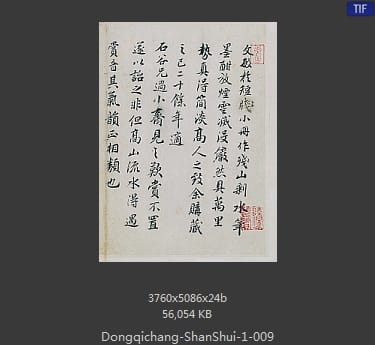 TIF
文敏於徑小冊作殘山剩水筆
墨酣放煙雲滅沒儼然具萬里
勢真得簡淡高人之致余購藏
之已二十餘年適
石谷兄過小齋見之歎賞不置
遂以詒之非但高山流水得遇
賞音其氣韻正相類也
3760x5086x24b
56,054 KB
Dongqichang-ShanShui-1-009